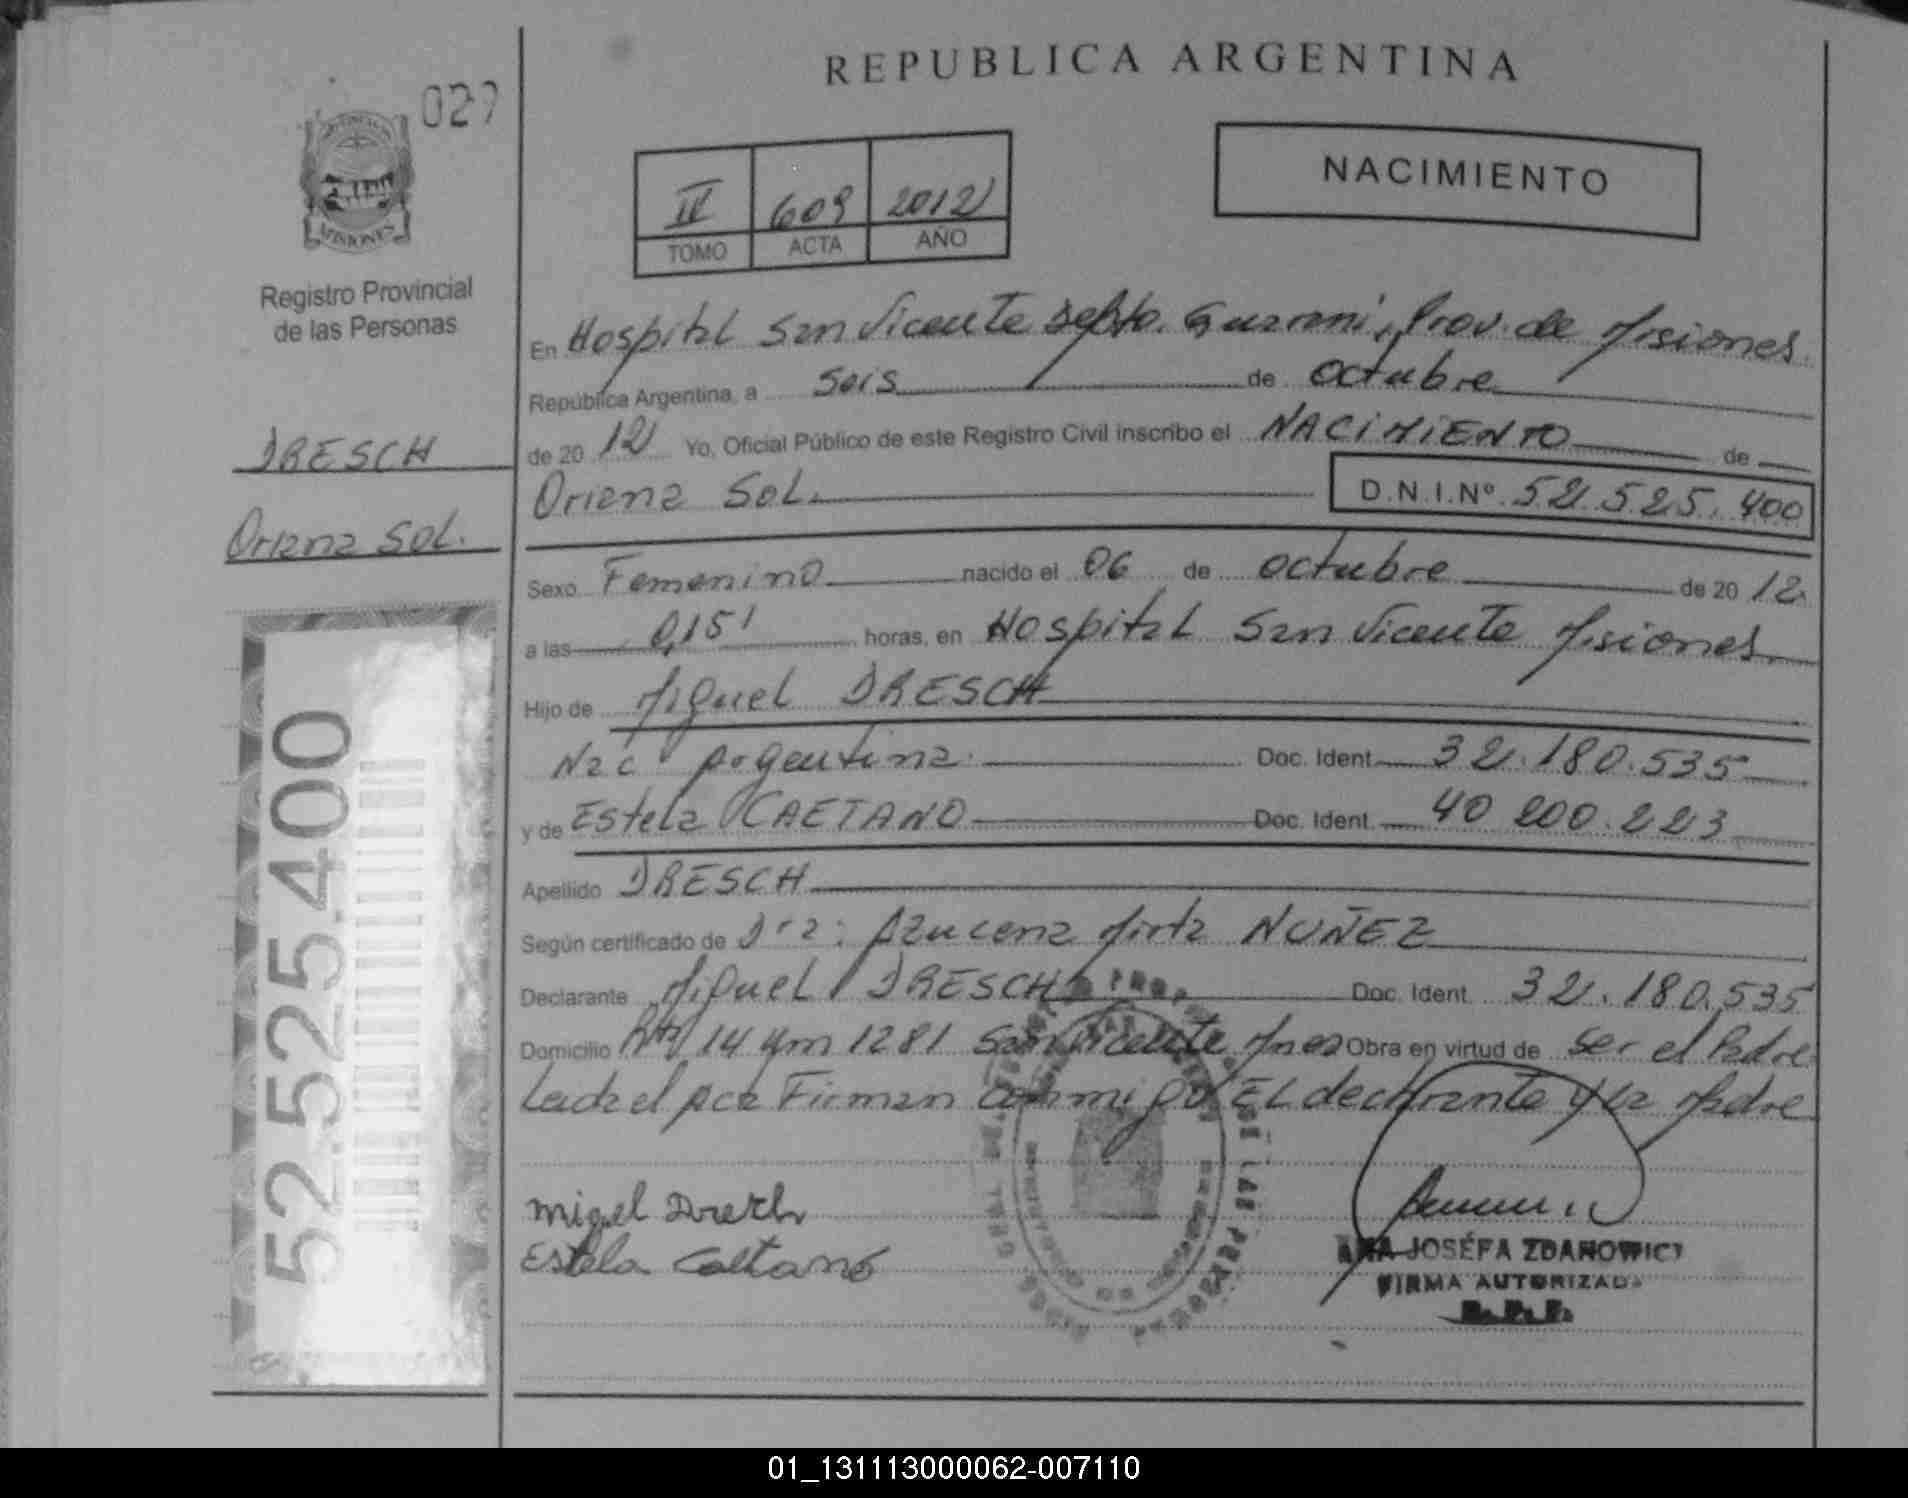 REPUBLICA ARGENTINA
027
NACIMIENTO
II 609 2012
TOMO ACTA AÑO
MISIONES
Registro Provincial
de las Personas
DRESCH
Oriana Sol.
52.525.400
En Hospital San Vicente Depto. Guarani, Prov. de Misiones.
República Argentina, a seis de octubre
de 20 12 Yo, Oficial Público de este Registro Civil inscribo el NACIMIENTO de
Oriana Sol. D.N.I.Nº 52.525.400
Sexo Femenino nacido el 06 de octubre de 20 12.
a las 0,15' horas, en Hospital San Vicente Misiones
Hijo de Miguel DRESCH
Nac Argentina. Doc. Ident. 32.180.535
y de Estela CAETANO Doc. Ident. 40 200.223
Apellido DRESCH
Según certificado de Dra: Azucena Mirta NUÑEZ
Declarante Miguel DRESCH Doc. Ident. 32.180.535
Domicilio 14 Km 1281 San Vicente Mnes Obra en virtud de ser el Padre
Leida el Acta Firman conmigo EL declarante y la Madre
Migel Dresch
Estela Caetano
ANA JOSEFA ZDANOWICZ
FIRMA AUTORIZADA
R.P.P.
01_131113000062-007110